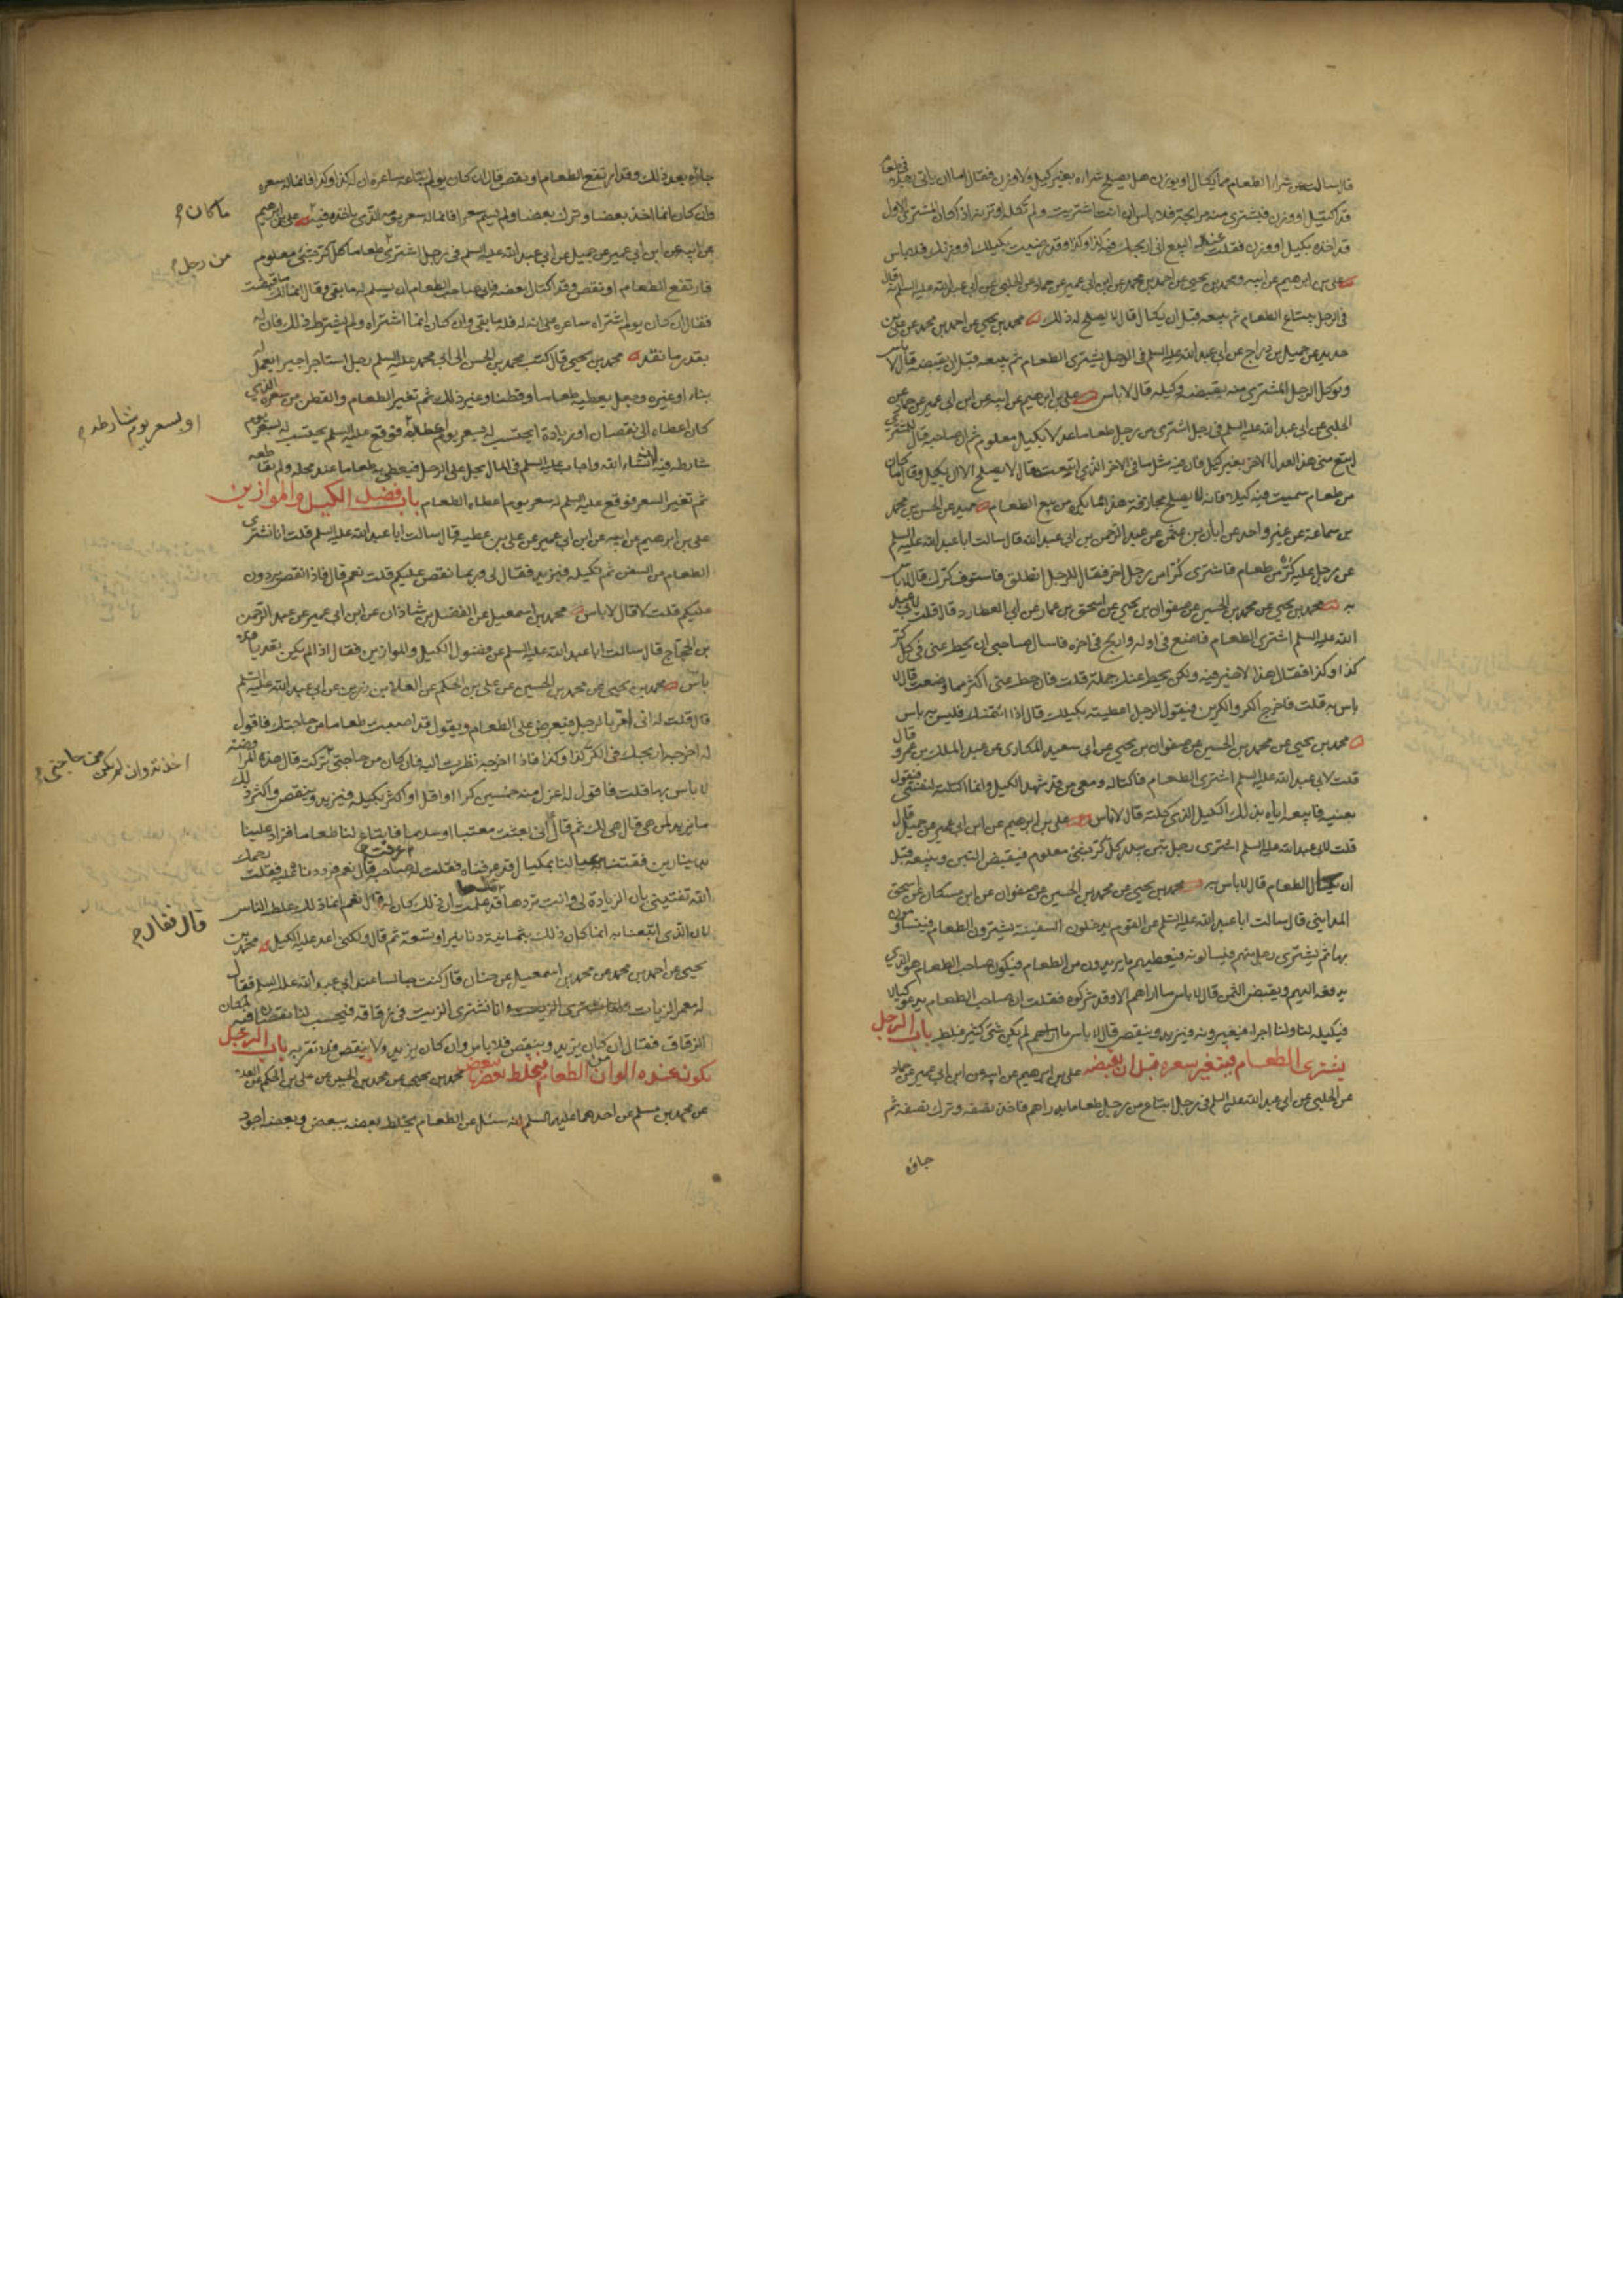 قال سالته عن شراء الطعام مما يكال او يوزن هل يصلح شراه بغير كيل ولا وزن فقال اما ان ياتي رجلا في طعام
قد اكتيل او وزن فيشتري منه مرابحة فلا باس ان انت اشتريت ولم تكله او تزنه اذا كان المشتري الاول
قد اخذه بكيل او وزن فقلت عند البيع اني اربحك فيه كذا وكذا وقد رضيت بكيلك او وزنك فلا باس
علي بن ابرهيم عن ابيه ومحمد بن يحيى عن احمد بن محمد عن ابن ابي عمير عن حماد عن الحلبي عن ابي عبد الله عليه السلم انه قال
في الرجل يبتاع الطعام ثم يبيعه قبل ان يكال قال لا يصلح له ذلك محمد بن يحيى عن احمد بن محمد عن علي بن
حديد عن جميل بن دراج عن ابي عبد الله عليه السلم في الرجل يشتري الطعام ثم يبيعه قبل ان يقبضه قال لا باس
ويوكل الرجل المشتري منه بقبضه وكيله قال لا باس علي بن ابرهيم عن ابيه عن ابن ابي عمير عن حماد عن
الحلبي عن ابي عبد الله عليه السلم في رجل اشترى من رجل طعاما عدلا بكيل معلوم ثم ان صاحبه قال للمشتري
ابتع مني هذا العدل الاخر بغير كيل فان فيه مثل ما في الاخر الذي ابتعت قال لا يصلح الا ان يكيل وقال ما كان
من طعام سميت فيه كيلا فانه لا يصلح مجازفة هذا ما يكره من بيع الطعام حميد عن الحسن بن محمد
بن سماعة عن غير واحد عن ابان بن عثمن عن عبد الرحمن بن ابي عبد الله قال سالت ابا عبد الله عليه السلم
عن رجل عليه كر من طعام فاشترى كرا من رجل اخر فقال للرجل انطلق فاستوف كرك قال لا باس
به محمد بن يحيى عن محمد بن الحسين عن صفوان بن يحيى عن اسحق بن عمار عن ابي العطارد قال قلت لابي عبد
الله عليه السلم اشتري الطعام فاضع في اوله واربح في اخره فاسال صاحبي ان يحط عني في كل كر
كذا وكذا فقال هذا لا خير فيه ولكن يحط عنك جملة قلت فان حط عني اكثر مما وضعت قال لا
باس به قلت فاخرج الكر والكرين فيقول الرجل اعطيته بكيلك قال اذا ائتمنك فليس به باس
محمد بن يحيى عن محمد بن الحسين عن صفوان بن يحيى عن ابي سعيد المكاري عن عبد الملك بن عمرو قال
قلت لابي عبد الله عليه السلم اشتري الطعام فاكتاله ومعي من قد شهد الكيل وانما اكتلته لنفسي فيقول
بعنيه فابيعه اياه بذلك الكيل الذي كلته قال لا باس علي بن ابرهيم عن ابن ابي عمير عن جميل قال
قلت لابي عبد الله عليه السلم اشترى رجل تبن بيدر كل كر بشئ معلوم فيقبض التبن ويبيعه قبل
ان يكال الطعام قال لا باس به محمد بن يحيى عن محمد بن الحسين عن صفوان عن ابن مسكان عن اسحق
المدايني قال سالت ابا عبد الله عليه السلم عن القوم يدخلون السفينة يشترون الطعام فيتساومون
بها ثم يشتري رجل منهم فيسالونه فيعطيهم ما يريدون من الطعام فيكون صاحب الطعام هو الذي
يدفعه اليهم ويقبض الثمن قال لا باس ما اراهم الا وقد شركوه فقلت ان صاحب الطعام يدعو كيالا
فيكيله لنا ولنا اجراء فيعيرونه فيزيد وينقص قال لا باس ما لم يكن شئ كثير غلط باب الرجل
يشتري الطعام فيتغير سعره قبل ان يقبضه علي بن ابرهيم عن ابيه عن ابن ابي عمير عن حماد
عن الحلبي عن ابي عبد الله عليه السلم في رجل ابتاع من رجل طعاما بدراهم فاخذ نصفه وترك نصفه ثم
جاءه
جاءه بعد ذلك وقد ارتفع الطعام او نقص قال ان كان يوم ابتاعه ساعره ان له كذا وكذا فانما له سعره
وان كان انما اخذ بعضا وترك بعضا ولم يسم سعرا فانما له سعر يومه الذي ياخذه فيه علي بن ابرهيم
ما كان
عن ابيه عن ابن ابي عمير عن جميل عن ابي عبد الله عليه السلم في رجل اشترى طعاما كل كر بشئ معلوم
من رجل
فارتفع الطعام او نقص وقد اكتال بعضه فابى صاحب الطعام ان يسلم له ما بقي وقال انما لك ما قبضت
فقال ان كان يوم اشتراه ساعره على انه له فله ما بقي وان كان انما اشتراه ولم يشترط ذلك فان له
بقدر ما نقد محمد بن يحيى قال كتب محمد بن الحسن الى ابي محمد عليه السلم رجل استاجر اجيرا يعمل له
بناء او غيره وجعل يعطيه طعاما وقطنا وغير ذلك ثم تغير الطعام والقطن من سعره الذي
كان اعطاه الى نقصان او زيادة ايحتسب له بسعر يوم اعطاه فوقع عليه السلم يحتسب له بسعر يوم
او بسعر يوم شارطه
شارطه فيه انشاء الله واجاب عليه السلم في المال يحل على الرجل فيعطي به طعاما عند محله ولم يقاطعه
ثم تغير السعر فوقع عليه السلم له سعر يوم اعطاه الطعام باب فضل الكيل والموازين
علي بن ابرهيم عن ابيه عن ابن ابي عمير عن علي بن عطيه قال سالت ابا عبد الله عليه السلم قلت انا نشتري
الطعام من السفن ثم نكيله فيزيد فقال لي وربما نقص عليكم قلت نعم قال فاذا نقص يردون
عليكم قلت لا قال لا باس محمد بن اسمعيل عن الفضل بن شاذان عن ابن ابي عمير عن عبد الرحمن
بن الحجاج قال سالت ابا عبد الله عليه السلم عن فضول الكيل والموازين فقال اذا لم يكن تعديا فلا
باس محمد بن يحيى عن محمد بن الحسين عن علي بن الحكم عن العلا بن رزين عن ابي عبد الله عليه السلم
قال قلت له اني امر بالرجل فيعرض علي الطعام ويقول قد اصبت طعاما من حاجتك فاقول
له اخرجه اربحك في الكر كذا وكذا فاذا اخرجه نظرت اليه فان كان من حاجتي تركته قال هذه المراوضة
اخذته وان لم يكن من حاجتي
لا باس بها قلت فاقول له اعزل منه خمسين كرا او اقل او اكثر بكيله فيزيد وينقص واكثر ذلك
ما يزيد لمن هي قال هي لك ثم قال اني بعثت معتبا او سلاما فابتاع لنا طعاما فزاد علينا
بدينارين فقتنا به عيالنا بمكيال قد عرفناه فقلت له عرفت صاحبه قال نعم فرددنا عليه فقلت رحمك
الله تفتيني بان الزيادة لي وانت تردها قد علمت ان ذلك كان له قال نعم انما ذلك غلط الناس
قال فقال
لان الذي ابتعنا به انما كان ذلك بثمانية دنانير او تسعة ثم قال ولكني اعد عليه الكيل محمد بن
يحيى عن احمد بن محمد عن محمد بن اسمعيل عن حنان قال كنت جالسا عند ابي عبد الله عليه السلم فقال
له معمر الزيات انا نشتري الزيت في زقاقه فيحسب لنا نقصان فيه لمكان
الزقاق فقال ان كان يزيد وينقص فلا باس وان كان يزيد ولا ينقص فلا تقربه باب الرجل
يكون عنده الوان من الطعام فيخلط بعضها ببعض محمد بن يحيى عن محمد بن الحسين عن علي بن الحكم عن العلا
عن محمد بن مسلم عن احدهما عليهما السلم انه سئل عن الطعام يخلط بعضه ببعض وبعضه اجود